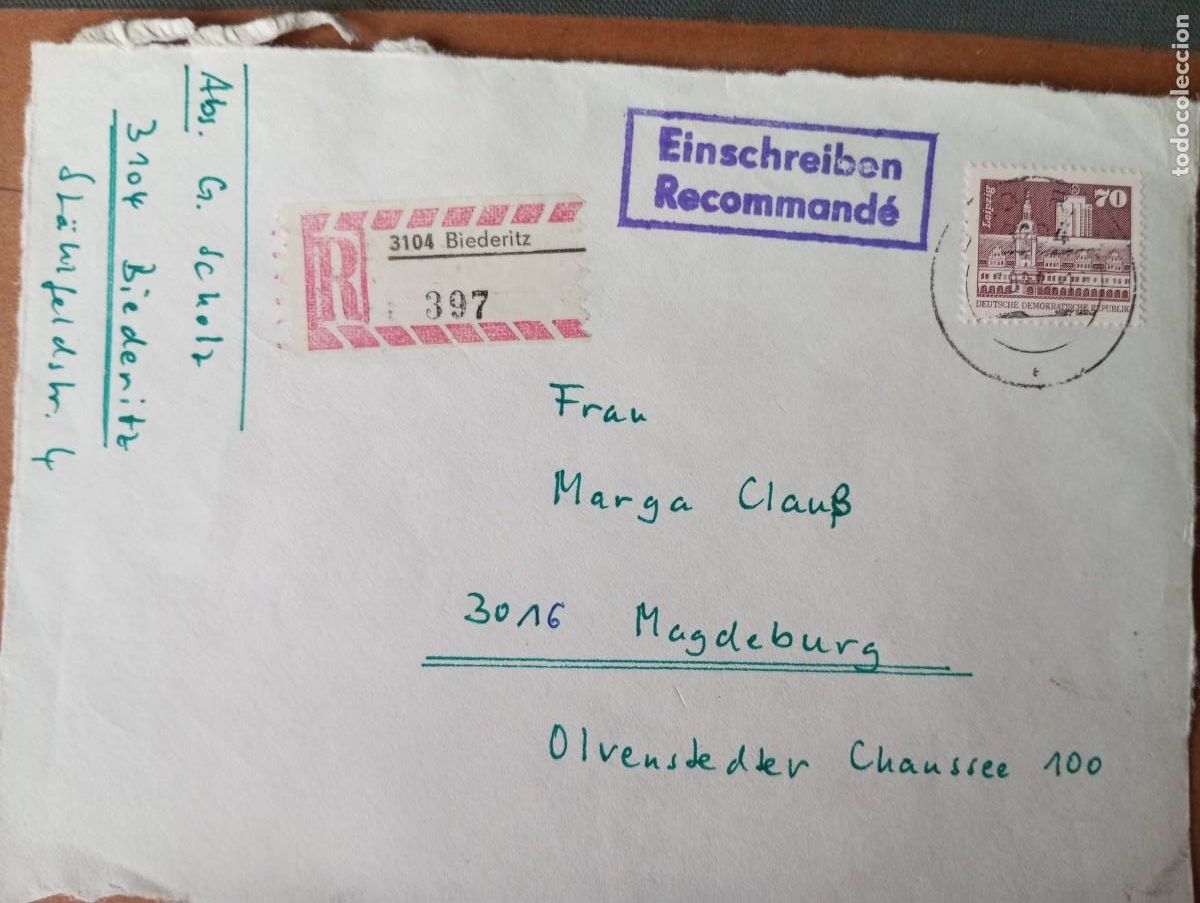 Abs. G. Scholz
3104 Biederitz
R
3104 Biederitz
397
Einschreiben
Recommandé
Leipzig
70
DEUTSCHE DEMOKRATISCHE REPUBLIK
Frau
Marga Clauß
3016 Magdeburg
Olvenstedter Chaussee 100
todocoleccion